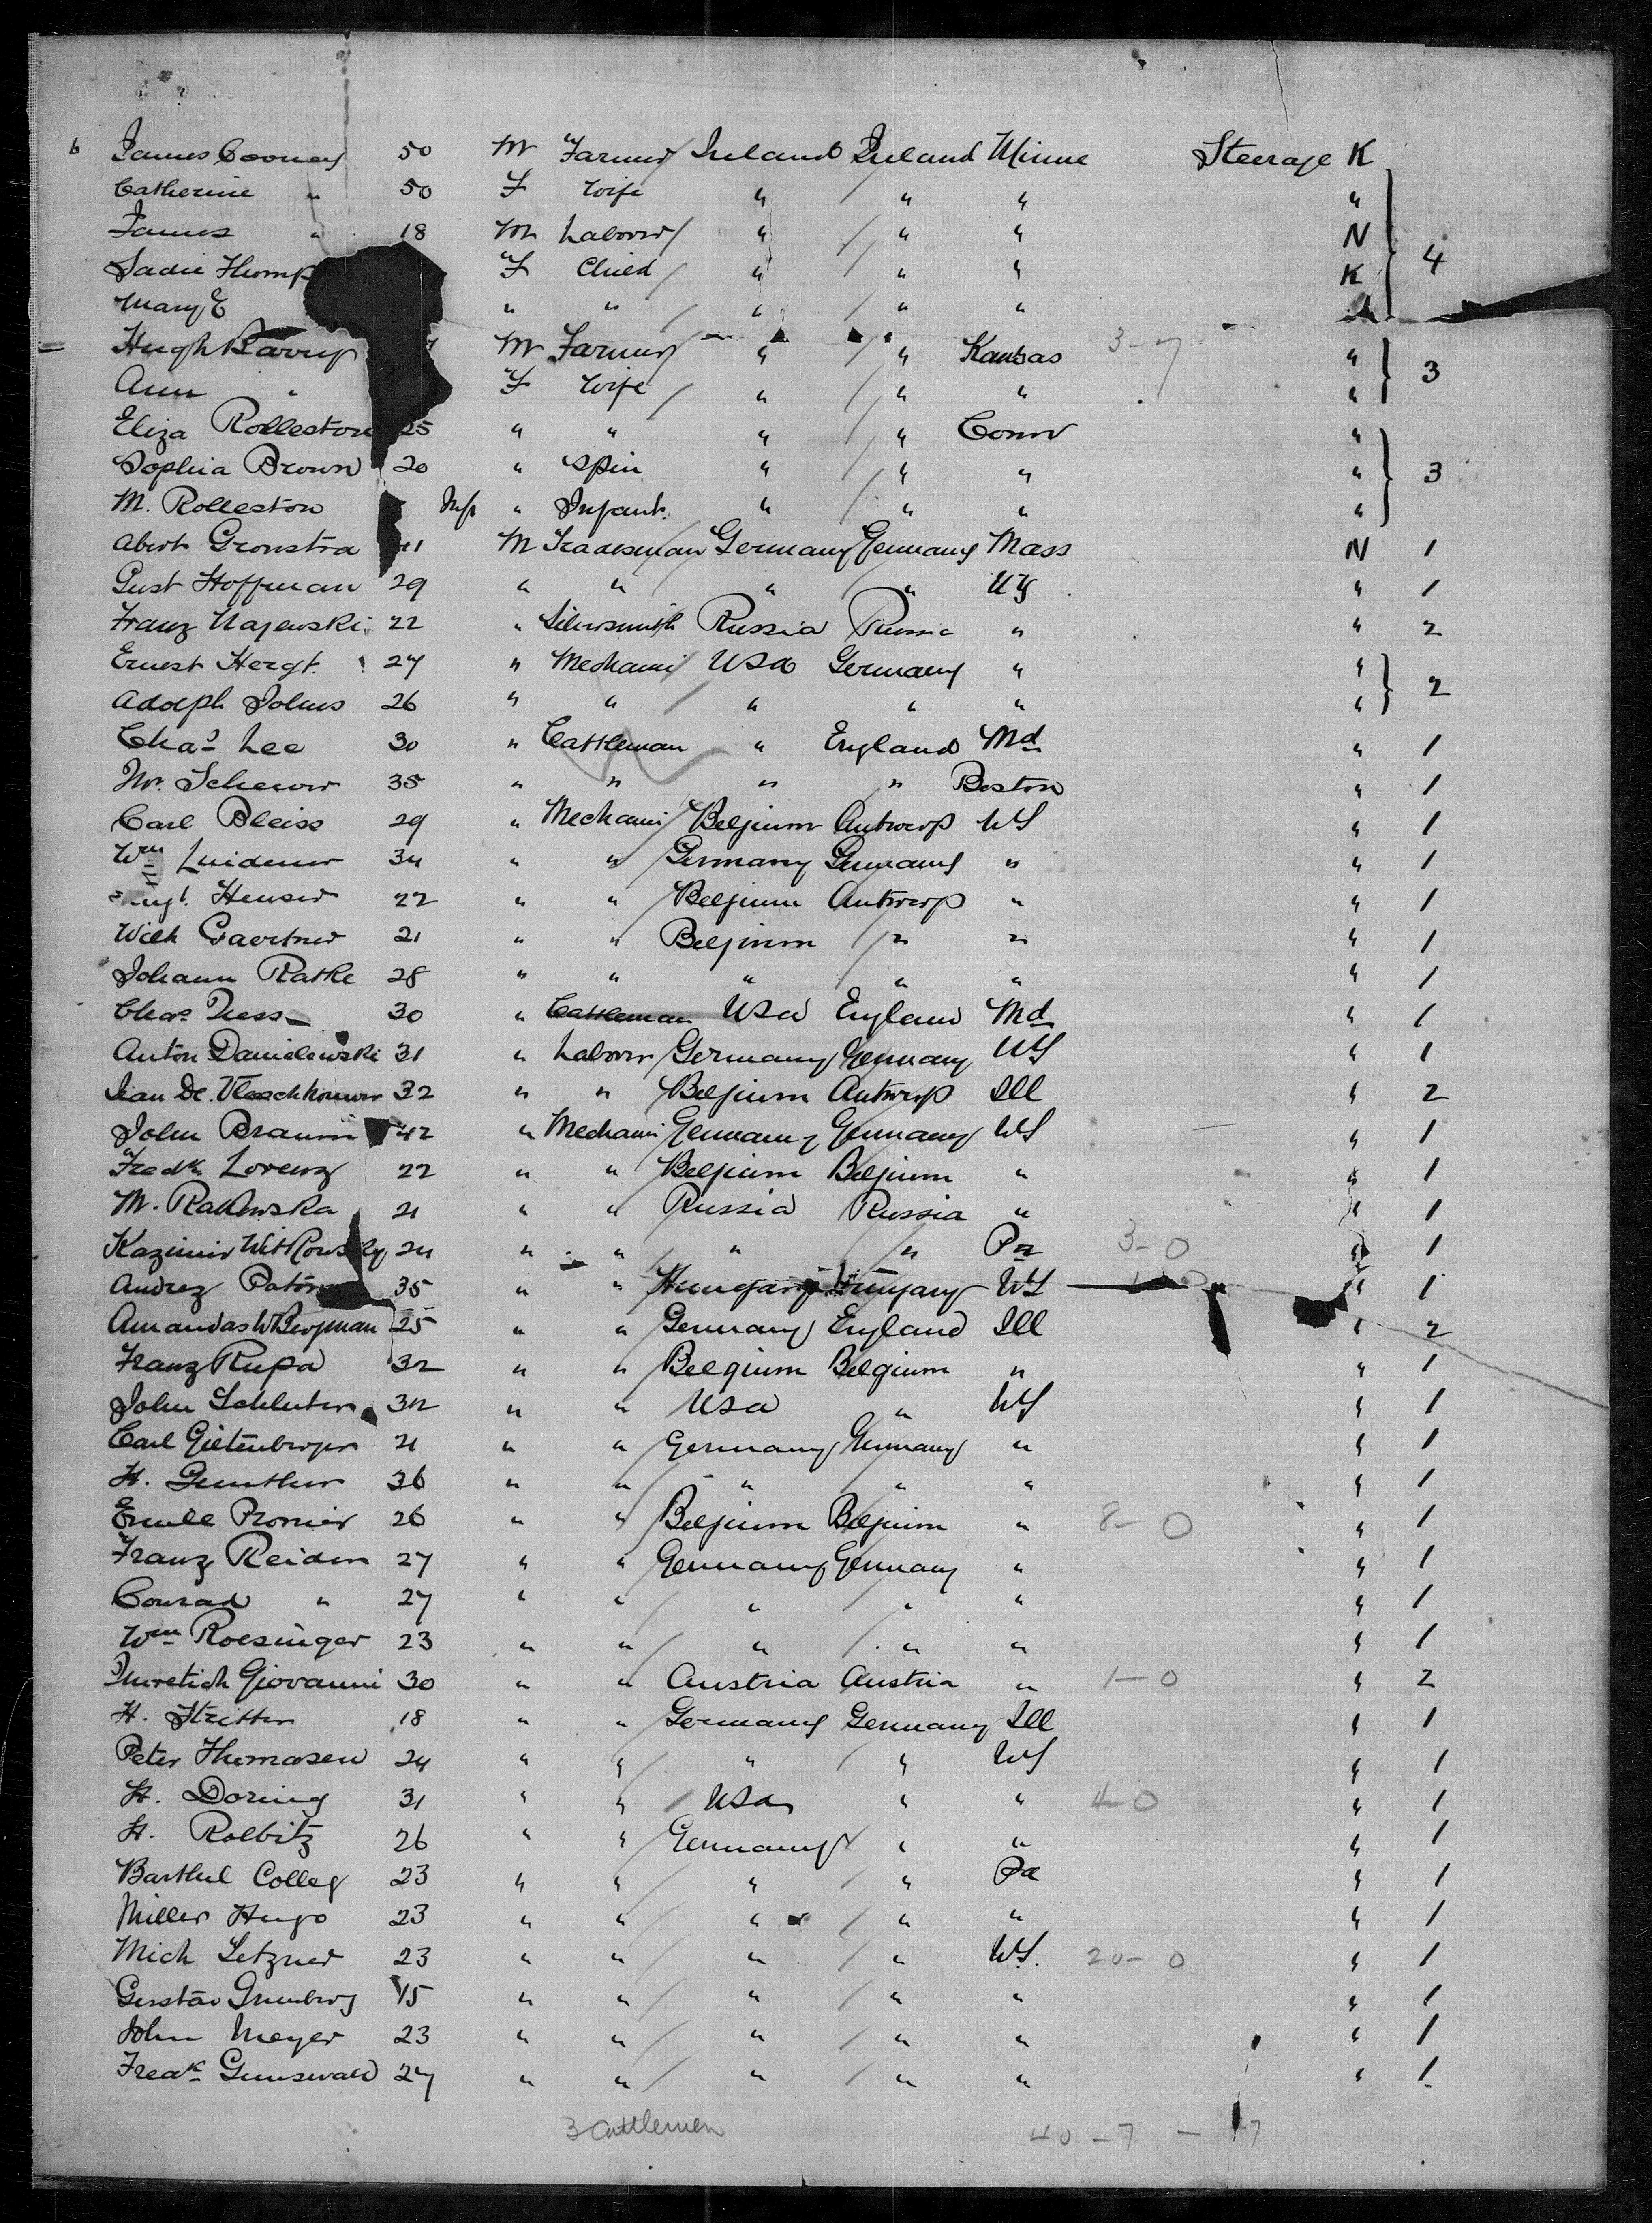 6 James Cooney 50 M Farmer Ireland Ireland Minne Steerage K
Catherine " 50 F Wife " " " "
James " 18 M Laborer " " " N
Sadie Thomp F Child " " " K 4
Mary E " " " " "
Hugh M Farmer " " Kansas 3-7 " 3
Ann " F Wife " " " "
Eliza Rolleston 25 " " " " Conn "
Sophia Brown 20 " Spin " " " " 3
M. Rolleston Inf " Infant. " " " "
Abert Gronstra 41 M Tradesman Germany Germany Mass N 1
Gust Hoffman 29 " " " " NY " 1
Franz Najewski 22 " Silversmith Russia Russia " " 2
Ernest Hergt. 27 " Mechanic USA Germany " "
Adolph Johns 26 " " " " " " 2
Chas Lee 30 " Cattleman " England Md " 1
35 " " " " Boston " 1
Carl Bleiss 29 " Mechanic Belgium Antwerp NY " 1
Wm Lindener 34 " " Germany Germany " " 1
Heuser 22 " " Belgium Antwerp " " 1
Wilh Gaertner 21 " " Belgium " " " 1
Johann Ratke 28 " " " " " " 1
Chas 30 " Cattleman USA England Md " 1
Anton Danielewski 31 " Laborer Germany Germany NY " 1
Jean De. 32 " " Belgium Antwerp Ill " 2
John Braun 42 " Mechanic Germany Germany NY " 1
Fredk Lorenz 22 " " Belgium Belgium " " 1
M. Rakowska 21 " " Russia Russia " " 1
Kazimir Witkowsky 24 " " " " Pa 3-0 " 1
Andrez 35 " " Hungary Hungary NY " 1
Amandas W Bergman 25 " " Germany England Ill " 2
Franz Rupa 32 " " Belgium Belgium " " 1
John Schluter 32 " " USA " NY " 1
Carl Gietenberger 21 " " Germany Germany " " 1
H. Gunther 36 " " " " " " 1
Emile Pronier 26 " " Belgium Belgium " 8-0 " 1
Franz Reider 27 " " Germany Germany " " 1
Conrad " 27 " " " " " " 1
Wm Roesinger 23 " " " " " " 1
Giovanni 30 " " Austria Austria " 1-0 " 2
H. Stritter 18 " " Germany Germany Ill " 1
Peter Thomasen 24 " " " " NY " 1
H. Doring 31 " " USA " " 4-0 " 1
H. Rolbitz 26 " " Germany " " " 1
Barthel Colley 23 " " " " Pa " 1
Miller Hugo 23 " " " " " " 1
Mich Letzner 23 " " " " NY. 20-0 " 1
Gustav Grunberg 45 " " " " " " 1
John Meyer 23 " " " " " " 1
Fredk Grunewald 27 " " " " " " 1
3 Cattlemen 40-7-47